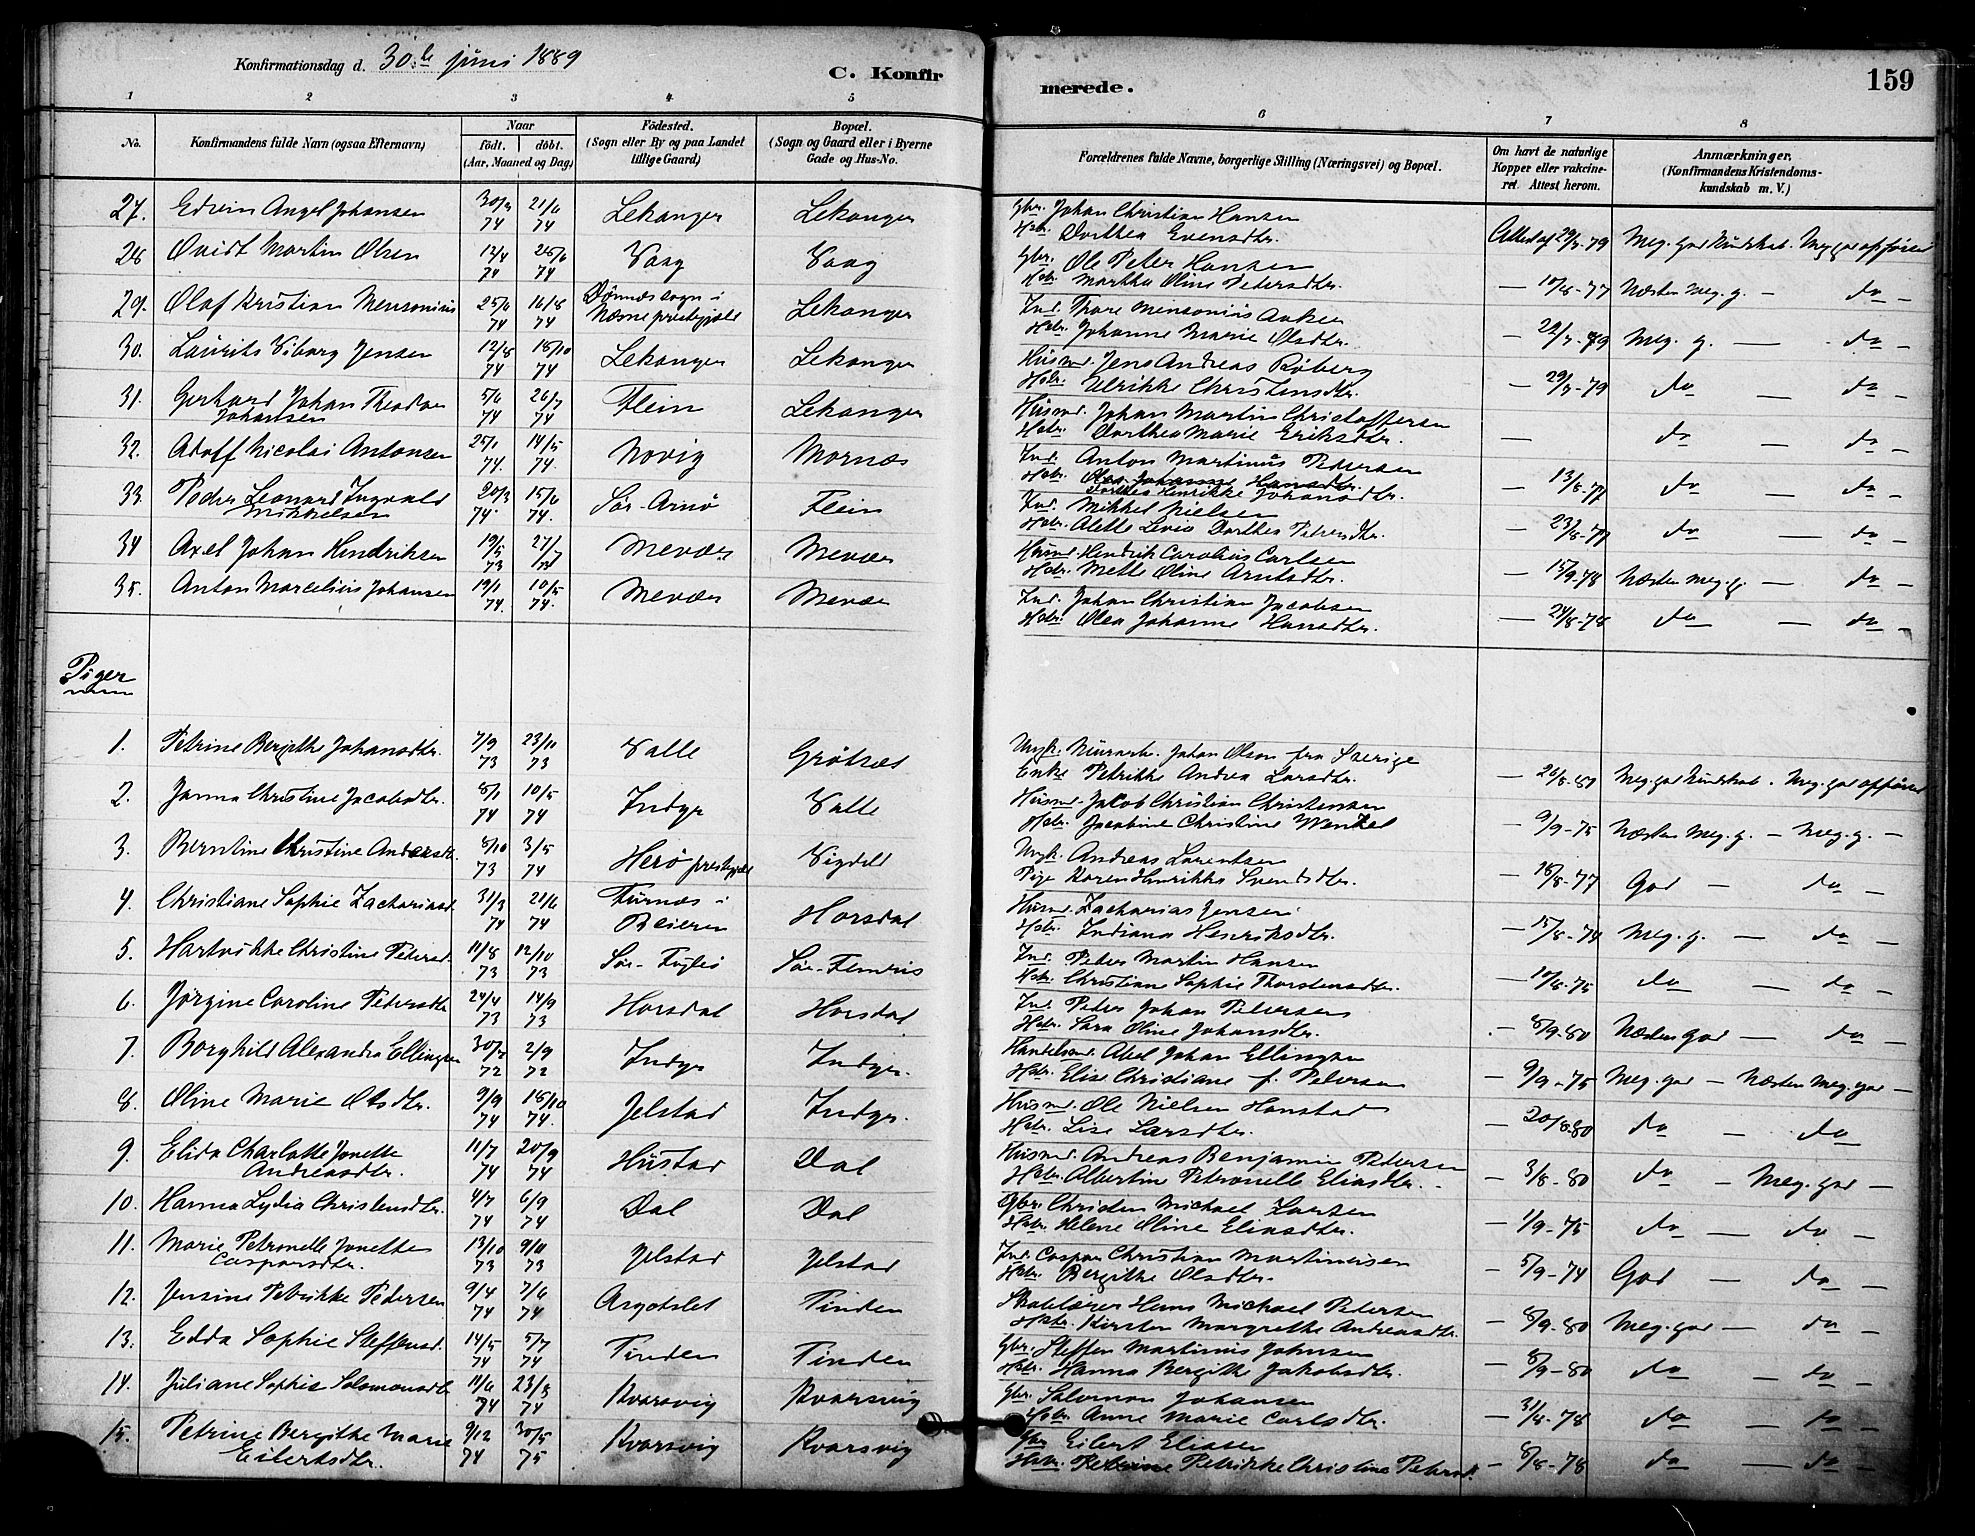 Konfirmationsdag d. 30te juni 1889
C. Konfirmerede.
159
1 2 3 4 5 6 7 8
No.
Konfirmandens fulde Navn (ogsaa Efternavn)
Naar
født. døbt.
(Aar, Maaned og Dag)
Fødested.
(Sogn eller By og paa Landet
tillige Gaard)
Bopæl.
(Sogn og Gaard eller i Byerne
Gade og Hus-No.
Forældrenes fulde Navne, borgerlige Stilling (Næringsvei) og Bopæl.
Om havt de naturlige
Kopper eller vakcine-
ret. Attest herom.
Anmærkninger.
(Konfirmandens Kristendoms-
kundskab m. V.)
27. Edvin Angel Johansen 30/3 74 21/6 74 Lekanger Lekanger Gbr. Johan Christian Hansen
Hstr. Dorthea Evensdtr. Attest af 29/7-79 Meg. god Kundskab. Meg. god opførsel
28 Ovidt Martin Olsen 12/4 74 25/6 74 Vaag Vaag Gbr. Ole Peter Hansen
Hstr. Martha Oline Petersdtr. — 10/8-77 Næsten meg. g. — do —
29. Olaf Kristian Mensonius 25/6 74 16/8 74 Dønnæs sogn i
Næsne prestegjeld Lekanger Ind. Thore Mensonius Aakesen
Hstr. Johanne Marie Olsdtr. — 22/7-79 Meg. g. — do —
30. Laurits Viborg Jensen 12/8 74 18/10 74 Lekanger Lekanger Husmd. Jens Andreas Røberg
Hstr. Ulrikke Christensdtr. — 29/7-79 do — do —
31. Gerhard Johan Theodor
Johansen 5/6 74 26/7 74 Flein Lekanger Husmd. Johan Martin Christoffersen
Hstr. Dorthea Marie Eriksdtr. — do — do —
32. Adolf Nicolai Antonsen 25/1 74. 14/5 74. Novig Mornæs Ind. Anton Martinus Pedersen
Hstr. Olea Johanne Hansdtr.
Dorthea Henrikke Johansdtr. — 13/8-77 do — do —
33. Peder Leonard Ingvald
Mikkelsen 20/3 74. 15/6 74. Sør-Arnø Flein Ind. Mikkel Nielsen
Hstr. Alette Levio Dorthea Petersdtr. — 23/8-77 do — do —
34 Axel Johan Hendriksen 19/5 73 27/7 73 Mevær Mevær Husmd. Hendrik Carolius Carlsen
Hstr. Mette Oline Arntsdtr. — 15/9-78 Næsten meg. g. — do —
35. Anton Marcelius Johansen 19/1 74. 10/5 74. Mevær Mevær Ind. Johan Christian Jacobsen
Hstr. Olea Johanne Hansdtr. — 24/8-78 do — do —
Piger
1. Petrine Bergithe Johansdtr. 7/9 73 23/10 73 Valle Grøtnæs Ungk. Murarb. Johan Olson fra Sverige
Enke Petrikke Andrea Larsdtr. — 26/8-81 Meg. god Kundskab. Meg. god opførsel
2. Janna Christine Jacobsdtr. 8/1 74 10/5 74 Indyr Valle Husmd. Jakob Christian Christensen
Hstr. Jacobine Christine Wenkel — 9/9-75 Næsten meg. g. — Meg. g. —
3. Berntine Christine Andersdtr. 8/10 73 3/5 74 Herø prestegjeld Sigdel Ungk. Andreas Lorentsen
Pige Karen Henrikke Svendsdtr. — 18/8-77 God — do —
4. Christiane Sophie Zachariasd. 31/3 74 21/6 74 Furnæs i
Beieren Horsdal Husmd. Zacharias Jensen
Hstr. Indiana Henriksdtr. — 15/8-74 Meg. g. — do —
5. Hartvikke Christine Petersd. 11/8 73 12/10 73 Sør-Fuglø Sør-Fleinis Ind. Peter Martin Hansen
Hstr. Christiane Sophie Thorstensdtr. — 10/8-75 do — do —
6. Jørgine Caroline Petersdtr 24/4 73 14/9 73 Horsdal Horsdal Ind. Peter Johan Petersen
Hstr. Sara Oline Johansdtr. — 8/9-80 Næsten god — do —
7. Borghild Alexandra Ellingsen 30/7 72 2/9 72 Indyr Indyr. Handelsmd. Abel Johan Ellingsen
Hstr. Elise Christiane f. Petersen — 9/9-75 Meg. god — Næsten meg. god —
8. Oline Marie Olsdtr. 9/9 74 18/10 74. Jelstad Indyr. Husmd. Ole Nielsen Hanstad
Hstr. Lise Larsdtr. — 20/8-80 do — do
9. Elida Charlotte Jonette
Andreasdtr. 11/7 74 20/9 74 Hustad Dal Husmd. Andreas Benjamin Petersen
Hstr. Albertine Petronelle Eliasdtr. — 3/8-80 do — Meg. god —
10. Hanna Lydia Christensdtr. 4/7 74 6/9 74 Dal Dal Gbr. Christen Michael Larsen
Hstr. Helene Oline Eliasdtr. — 1/9-75 do — do
11. Marie Petronelle Jonette
Caspersdtr. 13/10 73 9/11 73 Jelstad Jelstad Ind. Caspar Christian Martinusen
Hstr. Bergithe Olsdtr. — 5/9-74 God — do —
12. Jensine Petrikke Pedersen 9/4 74 7/6 74 Argotslet Tinden Skolelærer Hans Michael Petersen
Hstr. Kirsten Margrethe Andreasdtr. — 8/9-80 Meg. god — do —
13. Edda Sophie Steffensd. 14/5 74 5/7 74 Tinden Tinden Gbr. Steffen Martinus Johnsen
Hstr. Hanna Bergithe Jakobsdtr. — 8/9-80 do — do —
14. Juliane Sophie Salomonsdtr 11/6 74 23/8 74 Kvarsvig Kvarsvig Gbr. Salomon Johansen
Hstr. Anne Marie Carlsdtr. — 31/8-78 do — do —
15. Petrine Bergithe Marie
Eilertsdtr. 9/12 74 30/5 75 Kvarsvig Kvarsvig Gbr Eilert Eliasen
Hstr. Petrikke Christine Petersd. — 8/8-78 do — do —